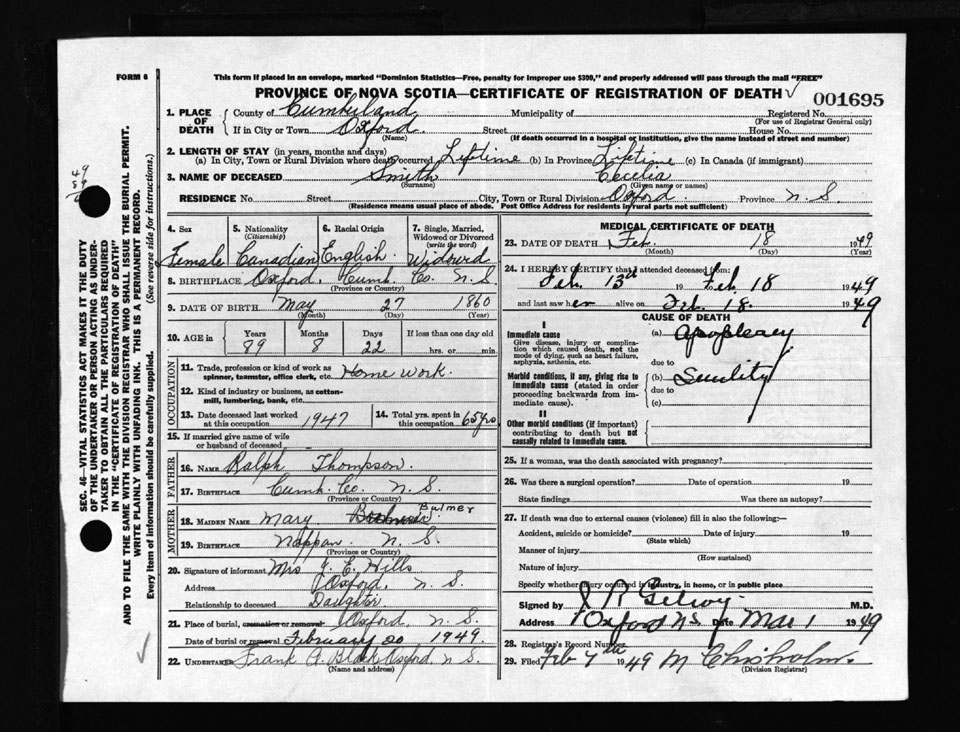 FORM 6
This form if placed in an envelope, marked "Dominion Statistics—Free, penalty for improper use $300," and properly addressed will pass through the mail "FREE"
PROVINCE OF NOVA SCOTIA—CERTIFICATE OF REGISTRATION OF DEATH
001695
1. PLACE OF DEATH
County of Cumberland Municipality of Registered No.
(For use of Registrar General only)
If in City or Town Oxford. Street House No.
(Name) (If death occurred in a hospital or institution, give the name instead of street and number)
2. LENGTH OF STAY (in years, months and days)
(a) In City, Town or Rural Division where death occurred Lifetime (b) In Province Lifetime (c) In Canada (if immigrant)
3. NAME OF DECEASED Smith Cecelia
(Surname) (Given name or names)
RESIDENCE No. Street City, Town or Rural Division Oxford. Province N.S.
(Residence means usual place of abode. Post Office Address for residents in rural parts not sufficient)
4. Sex 5. Nationality (Citizenship) 6. Racial Origin 7. Single, Married, Widowed or Divorced (write the word)
Female Canadian English Widowed
8. BIRTHPLACE Oxford, Cumb. Co. N.S.
(Province or Country)
9. DATE OF BIRTH May 27 1860
(Month) (Day) (Year)
10. AGE in Years Months Days If less than one day old
89 8 22 hrs. or min.
OCCUPATION
11. Trade, profession or kind of work as spinner, teamster, office clerk, etc. Home work.
12. Kind of industry or business, as cotton-mill, lumbering, bank, etc.
13. Date deceased last worked at this occupation 1947 14. Total yrs. spent in this occupation 65 yrs.
15. If married give name of wife or husband of deceased
FATHER
16. NAME Ralph Thompson.
17. BIRTHPLACE Cumb. Co. N.S.
(Province or Country)
MOTHER
18. MAIDEN NAME Mary Bulmer
19. BIRTHPLACE Nappan. N.S.
(Province or Country)
20. Signature of informant Mrs. G. E. Hills
Address Oxford, N.S.
Relationship to deceased Daughter.
21. Place of burial, cremation or removal Oxford, N.S.
Date of burial or removal February 20 1949.
22. UNDERTAKER Frank A. Black Oxford, N.S.
(Name and address)
MEDICAL CERTIFICATE OF DEATH
23. DATE OF DEATH Feb. 18 1949
(Month) (Day) (Year)
24. I HEREBY CERTIFY that I attended deceased from:
Feb. 13th 19 Feb. 18 1949
and last saw her alive on Feb. 18. 1949
CAUSE OF DEATH
I
Immediate cause (a) apoplexy
Give disease, injury or complication which caused death, not the mode of dying, such as heart failure, asphyxia, asthenia, etc.
due to
Morbid conditions, if any, giving rise to immediate cause (stated in order proceeding backwards from immediate cause).
(b) Senility
due to
(c)
II
Other morbid conditions (if important) contributing to death but not causally related to immediate cause.
25. If a woman, was the death associated with pregnancy?
26. Was there a surgical operation? Date of operation 19
State findings Was there an autopsy?
27. If death was due to external causes (violence) fill in also the following:—
Accident, suicide or homicide? Date of injury 19
(State which)
Manner of injury
(How sustained)
Nature of injury
Specify whether injury occurred in industry, in home, or in public place
Signed by M.D.
Address Oxford N.S. Date Mar 1 1949
28. Registrar's Record Number
29. Filed Feb 7th 1949 M Chisholm.
(Division Registrar)
SEC. 46—VITAL STATISTICS ACT MAKES IT THE DUTY
OF THE UNDERTAKER OR PERSON ACTING AS UNDER-
TAKER TO OBTAIN ALL THE PARTICULARS REQUIRED
IN THE "CERTIFICATE OF REGISTRATION OF DEATH"
AND TO FILE THE SAME WITH THE DIVISION REGISTRAR WHO SHALL ISSUE THE BURIAL PERMIT.
WRITE PLAINLY WITH UNFADING INK. THIS IS A PERMANENT RECORD.
Every item of information should be carefully supplied. (See reverse side for instructions.)
49
89